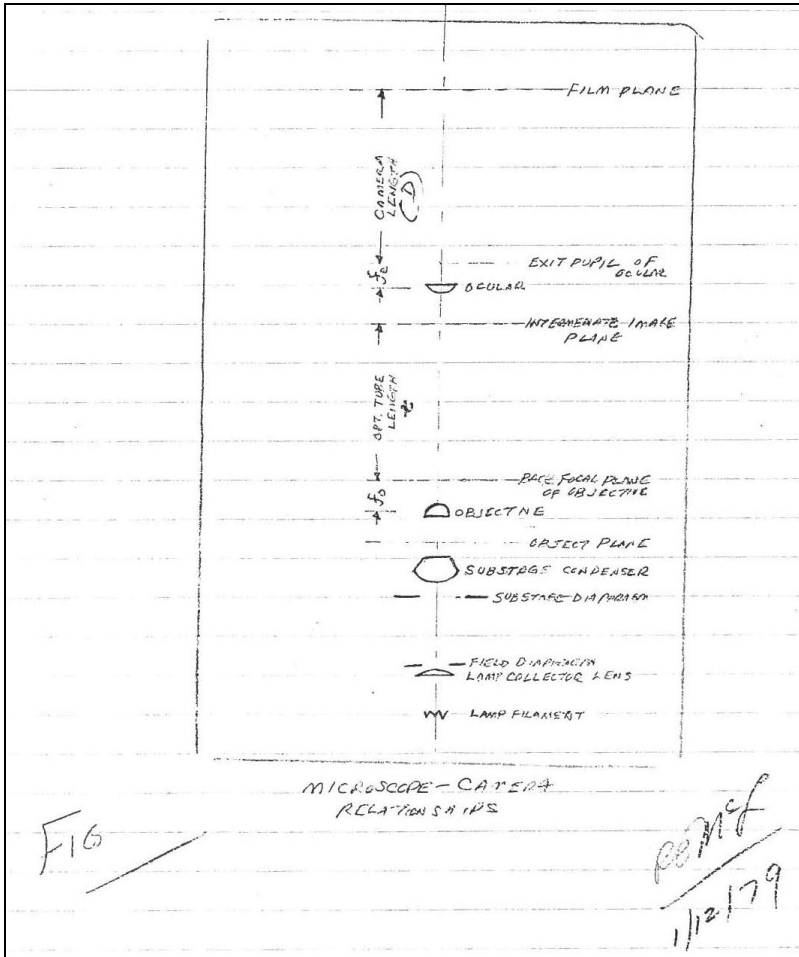 FILM PLANE
CAMERA
LENGTH
(D)
EXIT PUPIL OF
OCULAR
fe
OCULAR
INTERMEDIATE IMAGE
PLANE
OPT. TUBE
LENGTH
BACK FOCAL PLANE
OF OBJECTIVE
fo
OBJECTIVE
OBJECT PLANE
SUBSTAGE CONDENSER
SUBSTAGE DIAPHRAGM
FIELD DIAPHRAGM
LAMP COLLECTOR LENS
LAMP FILAMENT
MICROSCOPE - CAMERA
RELATIONSHIPS
FIG
1/12/79